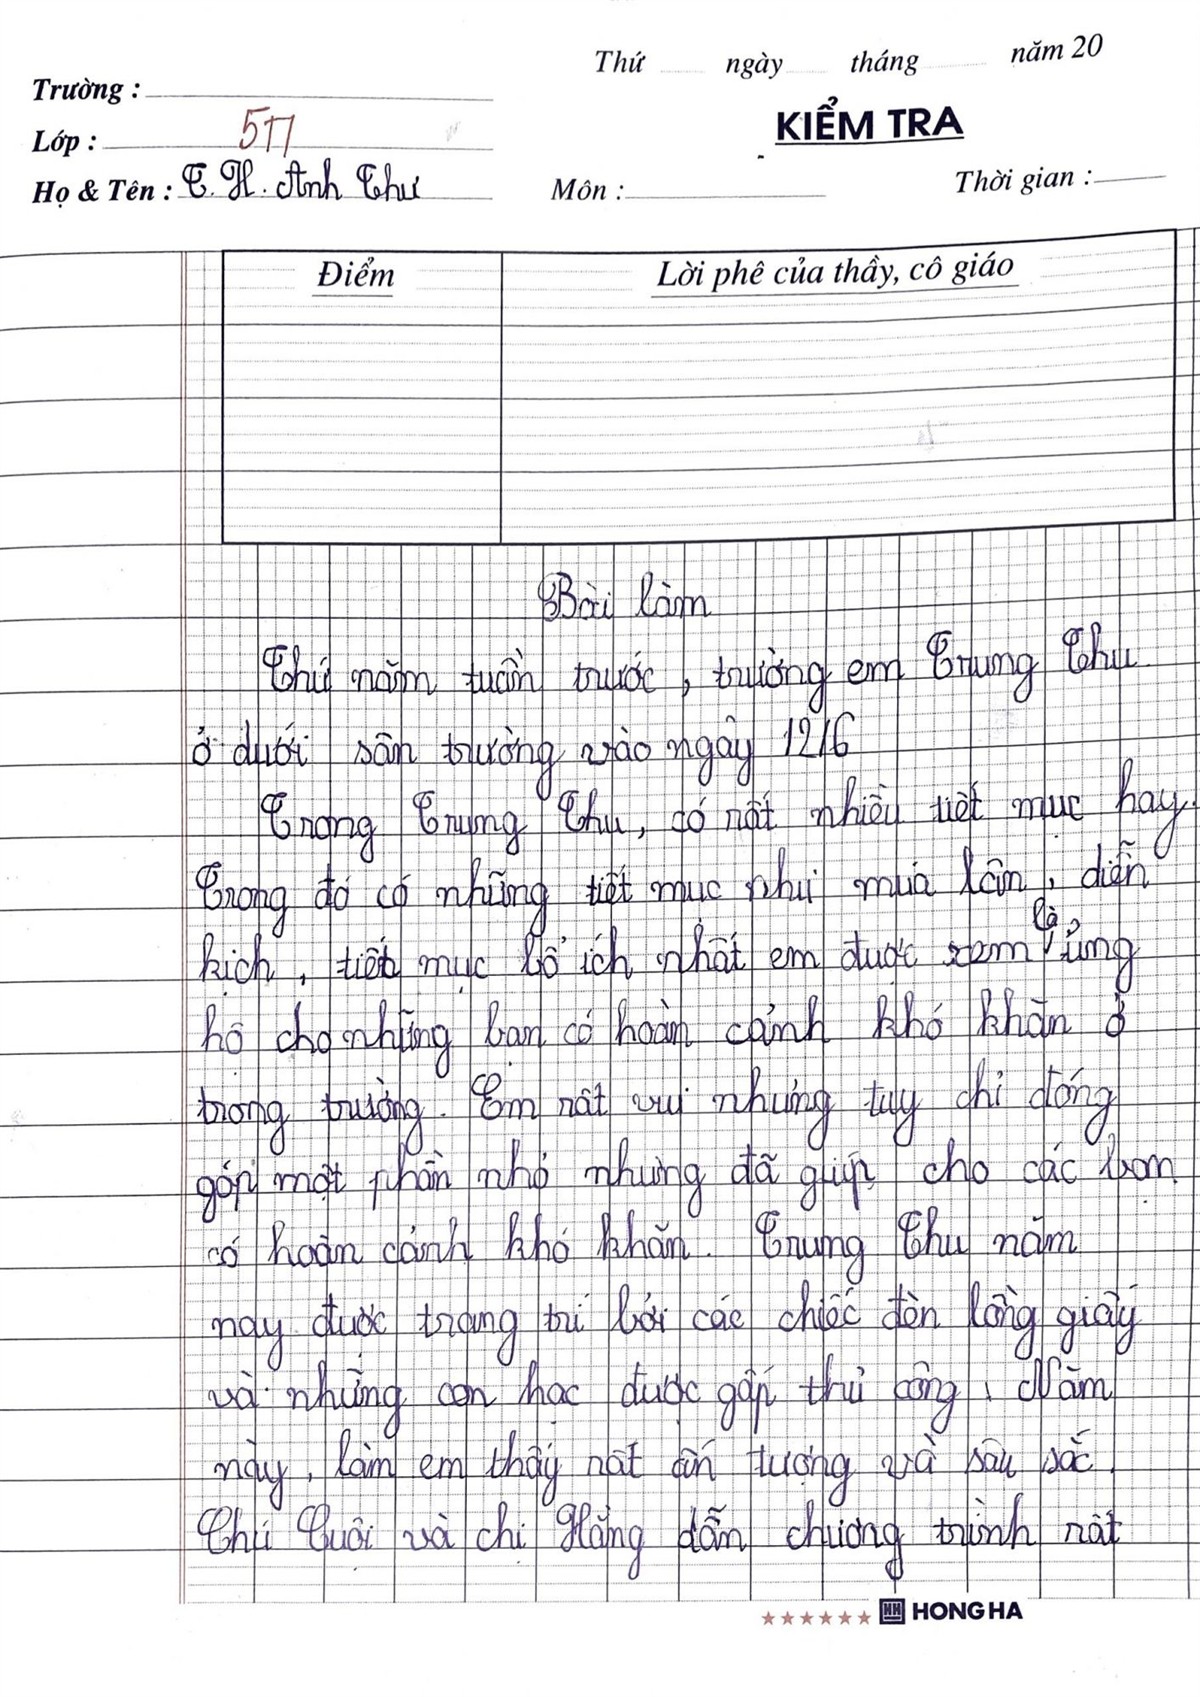 Thứ ngày tháng năm 20
Trường :
KIỂM TRA
Lớp : 5П
Họ & Tên : T. H. Anh Thư Môn : Thời gian :
Điểm Lời phê của thầy, cô giáo
Bài làm
Thứ năm tuần trước, trường em Trung Thu
ở dưới sân trường vào ngày 12/6
Trong Trung Thu, có rất nhiều tiết mục hay.
Trong đó có những tiết mục như múa lân, diễn
kịch, tiết mục bổ ích nhất em được xem là ủng
hộ cho những bạn có hoàn cảnh khó khăn ở
trong trường. Em rất vui nhưng tuy chỉ đóng
góp một phần nhỏ nhưng đã giúp cho các bạn
có hoàn cảnh khó khăn. Trung Thu năm
nay được trang trí bởi các chiếc đèn lồng giấy
và những con hạc được gấp thủ công. Năm
này, làm em thấy rất ấn tượng và sâu sắc.
Chú Cuội và chị Hằng dẫn chương trình rất
HONG HA